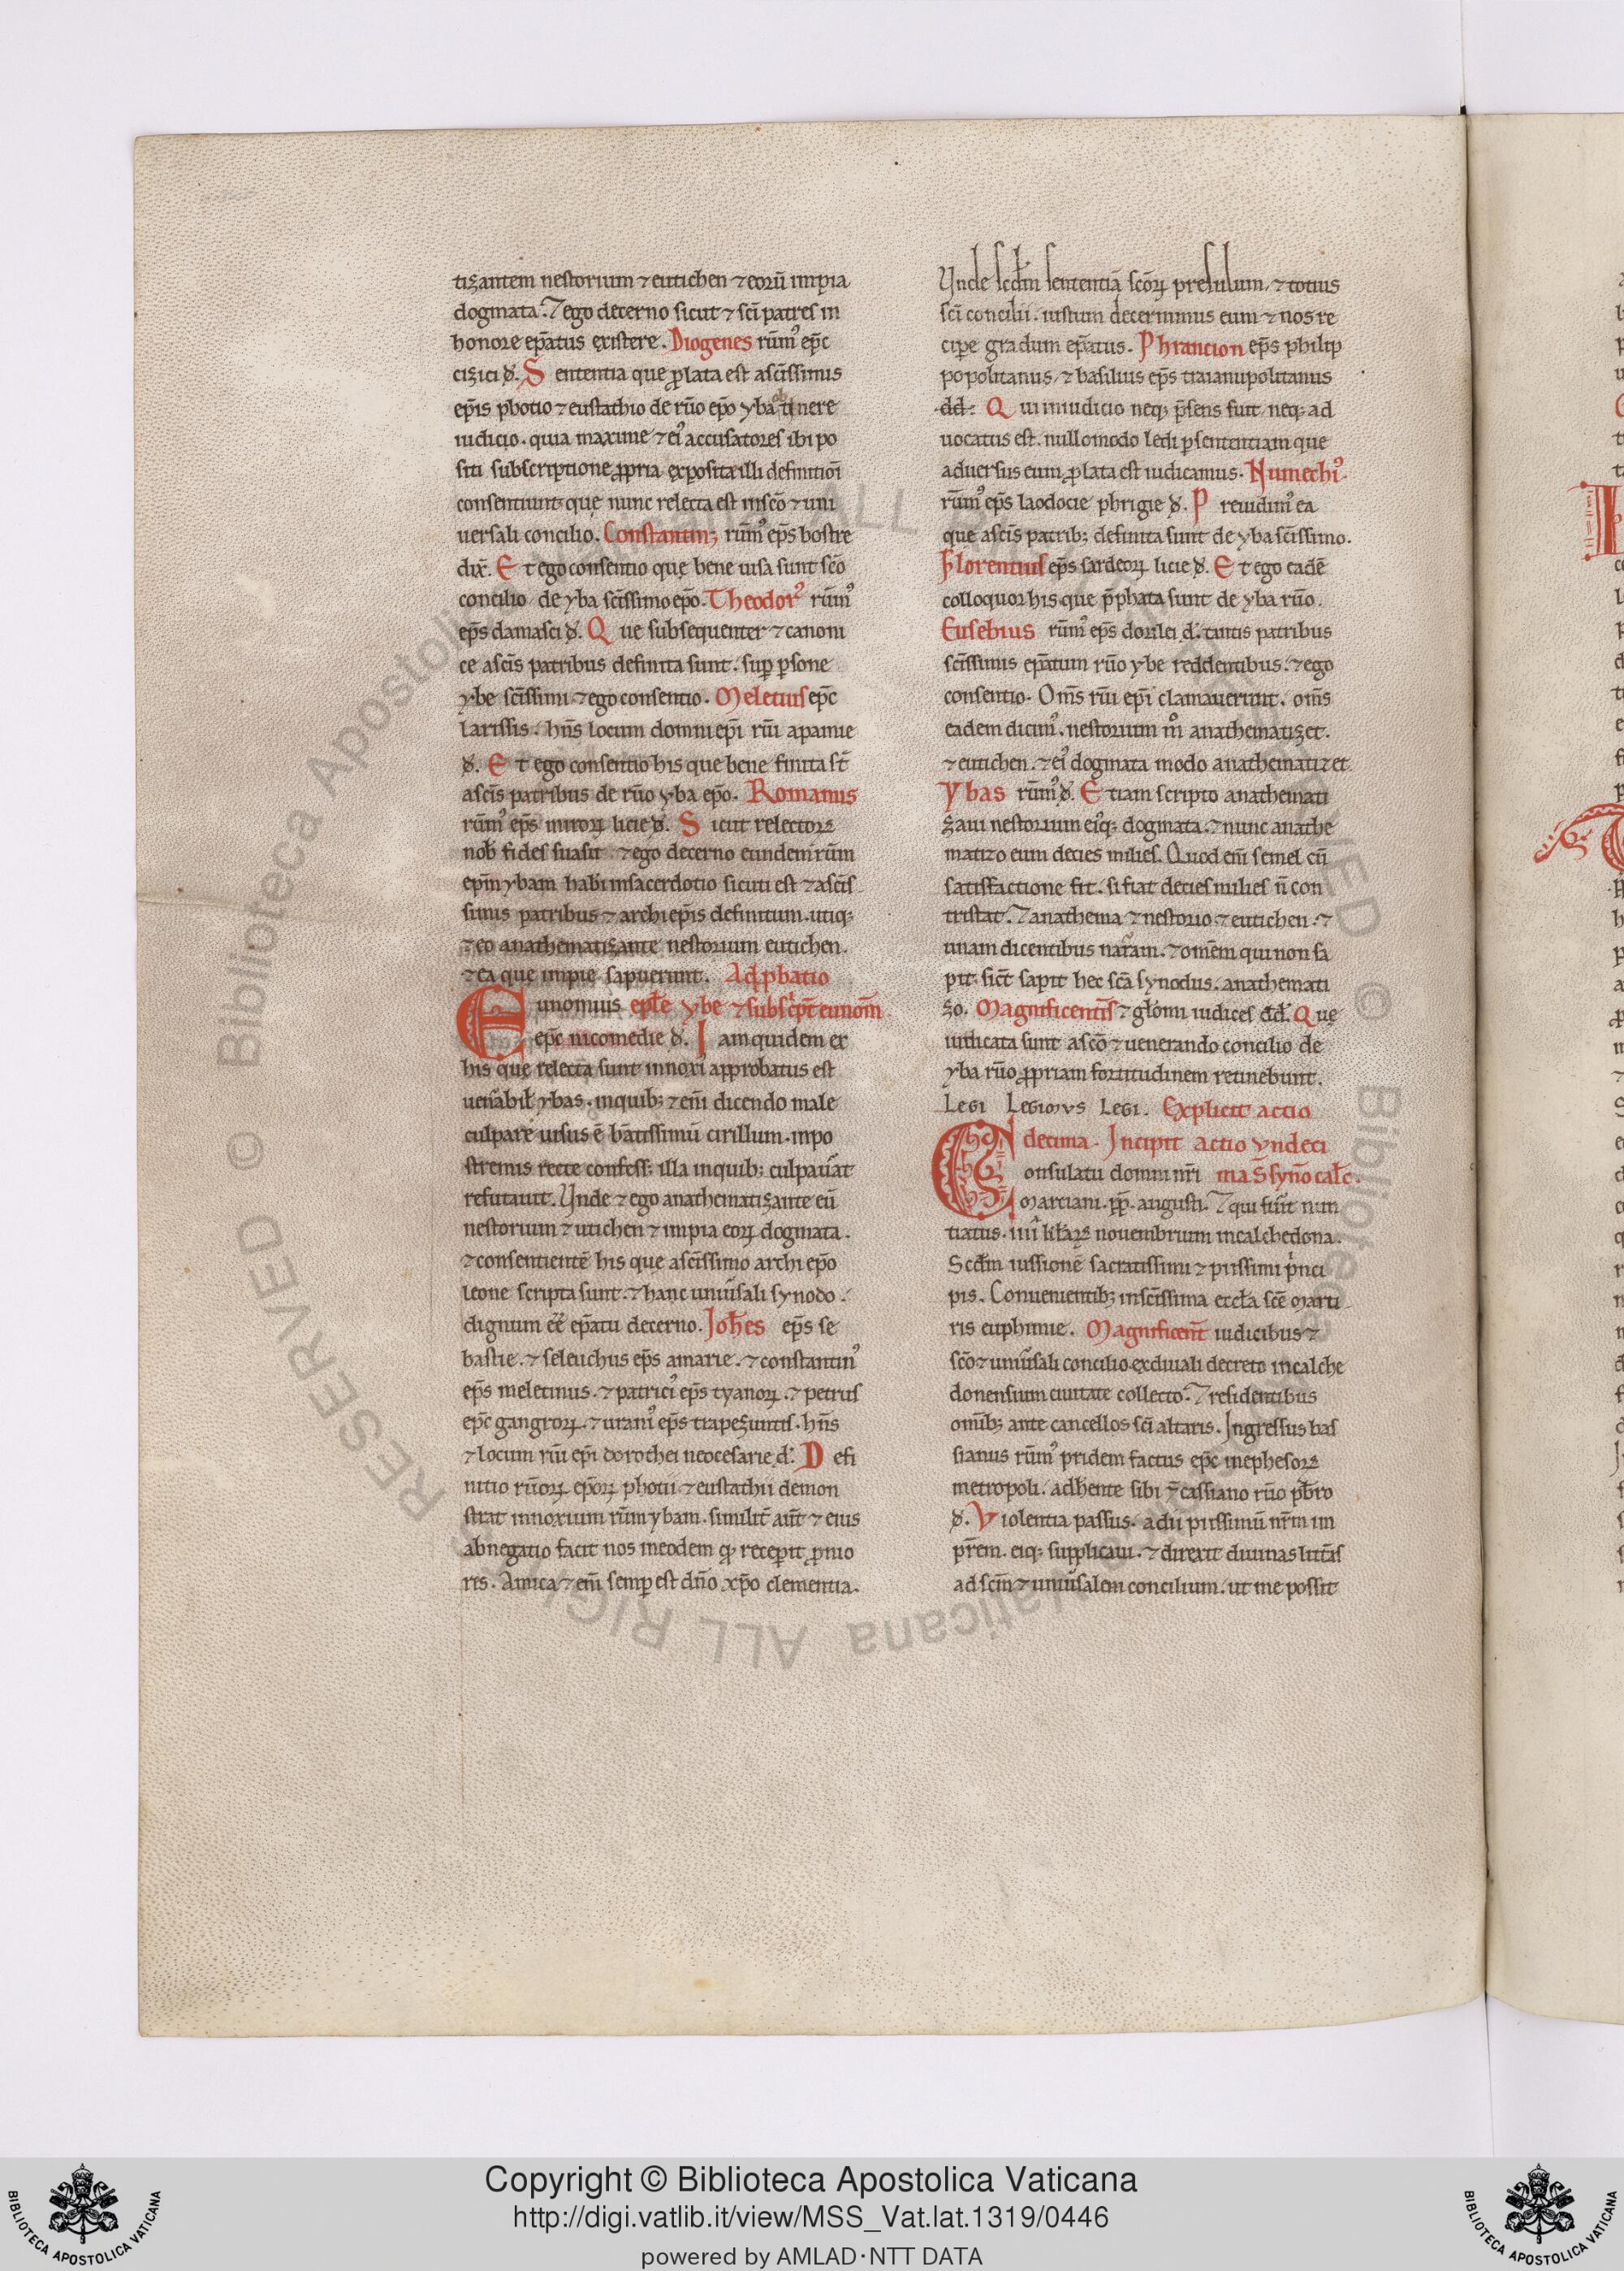 tizantem nestorium ⁊ eutichen ⁊ eorū impia
dogmata. ⁊ ego decerno sicut ⁊ sc̄i patres in
honore ep̄atus ęxistere. Diogenes rūm᾽ ep̄c
cizici đ. Sententia que ꝓlata est a sc̄issimis
ep̄is photio ⁊ eustathio de rūo ep̄o yba
iudicio. quia maxime ⁊ ei᾽ accusatores ibi po
siti subscriptione ꝓpria ęxposita illi definitioī
consentiunt que nunc relecta est in sc̄o ⁊ uni
uersali concilio. Constantin᾽ rūm᾽ ep̄s bostre
dix̄. Et ego consentio quę bene uisa sunt sc̄o
concilio de yba sc̄issimo ep̄o. Theodor᾽ rūm᾽
ep̄s damasci đ. Que subsequenter ⁊ canoni
ce a sc̄is patribus definita sunt. suꝑ ꝑsone
ybe sc̄issimi ⁊ ego consentio. Meletius ep̄c
larissis. hn̄s locum domni ep̄i rūi apamie
đ. Et ego consentio his que bene finita st̄
a sc̄is patribus de rūo yba ep̄o. Romanus
rūm᾽ ep̄s miroꝝ licie đ. Sicut relectoꝝ
nob̄ fides suasit ⁊ ego decerno eundem rūm
ep̄m ybam habi in sacerdotio sicuti est ⁊ a sc̄is
simis patribus ⁊ archiep̄is definitum. utiq;
⁊ eo anathematizante nestorium eutichen.
⁊ ea que impie sapuerunt. Adꝓbatio
Eunomius epl̄e ybe ⁊ subsc̓pt̄ eunom̄
ep̄c nicomedie đ. Iam quidem ex
his que relecta sunt innoxi approbatus est
uen̄abil̄ ybas. in quib; ⁊ eni̅ dicendo male
culpare uisus ē bātissimū cirillum. in po
stremis recte confess; illa in quib; culpauāt
refutauit. Unde ⁊ ego anathematizante eū
nestorium ⁊ utichen ⁊ impia eoꝝ dogmata.
⁊ consentientē his que a sc̄issimo archiep̄o
leone scripta sunt. ⁊ hanc uniūsali synodo.
dignum eē̄ ep̄atu decerno. Joh̄es ep̄s se
bastie. ⁊ seleuchus ep̄s amarie. ⁊ constantin᾽
ep̄s meletinus. ⁊ patrici᾽ ep̄s tyanoꝝ. ⁊ petrus
ep̄c gangroꝝ. ⁊ urani᾽ ep̄s trapezuntis. hn̄s
⁊ locum rūi ep̄i dorothei neocesarie đ. Defi
nitio rūoꝝ ep̄oꝝ photii ⁊ eustathii demon
strat innoxium rūm ybam. similit̄ aūt ⁊ eius
abnegatio facit nos in eodem ꝙ recepit ꝓnio
res. Amica ⁊ eni̅ semꝑ est dn̄o xp̄o clementia.
Unde scd̄m sententiā sc̄oꝝ presulum, ⁊ totius
sc̄i concilii. iustum decernimus eum ⁊ nos re
ciꝑe gradum ep̄atus. Phrancion ep̄s philip
popolitanus, ⁊ basilius ep̄s traianupolitanus
dd. Qui in iudicio neq; p̄sens fuit neq; ad
uocatus est. nullomodo ledi ꝑ sententiam que
aduersus eum ꝓlata est iudicamus. Nunechi᾽
rūm᾽ ep̄s laodocie phrigie đ. Preuidim᾽ ea
que a sc̄is patrib; definita sunt de yba sc̄issimo.
Florentius ep̄s sardeoꝝ licie đ. Et ego eadē
colloquor his que p̄phata sunt de yba rūo.
Eusebius rūm᾽ ep̄s dorilei đ. tantis patribus
sc̄issimis ep̄atum rūo ybe reddentibus. ⁊ ego
consentio. Om̄s rūi ep̄i clamauerunt. om̄s
eadem dicim᾽. nestorium m̊ anathematizet.
⁊ eutichen. ⁊ ei᾽ dogmata modo anathematizet
Ybas rūm᾽ đ. Etiam scripto anathemati
zaui nestorium ei᾽q; dogmata. ⁊ nunc anathe
matizo eum decies milies. Quod eni̅ semel cū
satisfactione fit. si fiat decies milies n̄ con
tristat. ⁊ anathema ⁊ nestorio ⁊ eutichen. ⁊
unam dicentibus nat̄am. ⁊ omēm qui non sa
pit. sic̄t sapit hec sc̄a synodus. anathemati
zo. Magnificentis̄ ⁊ gl̄omi iudices dd̄. Quę
iudicata sunt a sc̄o ⁊ uenerando concilio de
yba rūo ꝓpriam fortitudinem retinebunt.
Legi Legimus Legi. Explicit actio
decima. Incipit actio undeci
Consulatu domini nr̄i ma S̄ syn̄o calc̄.
Marciani. ꝑp̄. augusti. ⁊ qui fūit nun
tiatus. iiii kl̄arꝝ nouembrium in calchedona.
Scd̄m iussionē sacratissimi ⁊ piissimi p̓nci
pis. Conuenientib; in sc̄issima eccl̄a sc̄e marti
ris euphimie. Magnificent̄ iudicibus ⁊
sc̄o ⁊ uniūsali concilio ęx diuali decreto in calche
donensium ciuitate collecto. ⁊ residentibus
omib; ante cancellos sc̄i altaris. Ingressus bas
sianus rūm᾽ pridem factus ep̄c in ephesoꝝ
metropoli. adh̄ente sibi ⁊̄ cassiano rūo pb̄ro
đ. Violentia passus. adii piissimū nr̄m im
p̄rem. eiq; supplicaui. ⁊ direxit diuinas litt̄as
ad sc̄m ⁊ uniūsalem concilium. ut me possit
Copyright © Biblioteca Apostolica Vaticana
http://digi.vatlib.it/view/MSS_Vat.lat.1319/0446
powered by AMLAD·NTT DATA